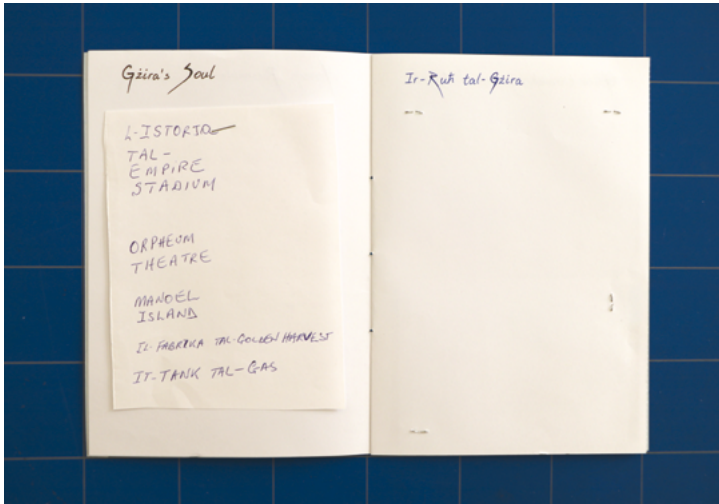 Gżira's Soul
L-ISTORJA
TAL-
EMPIRE
STADIUM
ORPHEUM
THEATRE
MANOEL
ISLAND
IL-FABRIKA TAL-GOLDEN HARVEST
IT-TANK TAL-GAS
Ir-Ruħ tal-Gżira